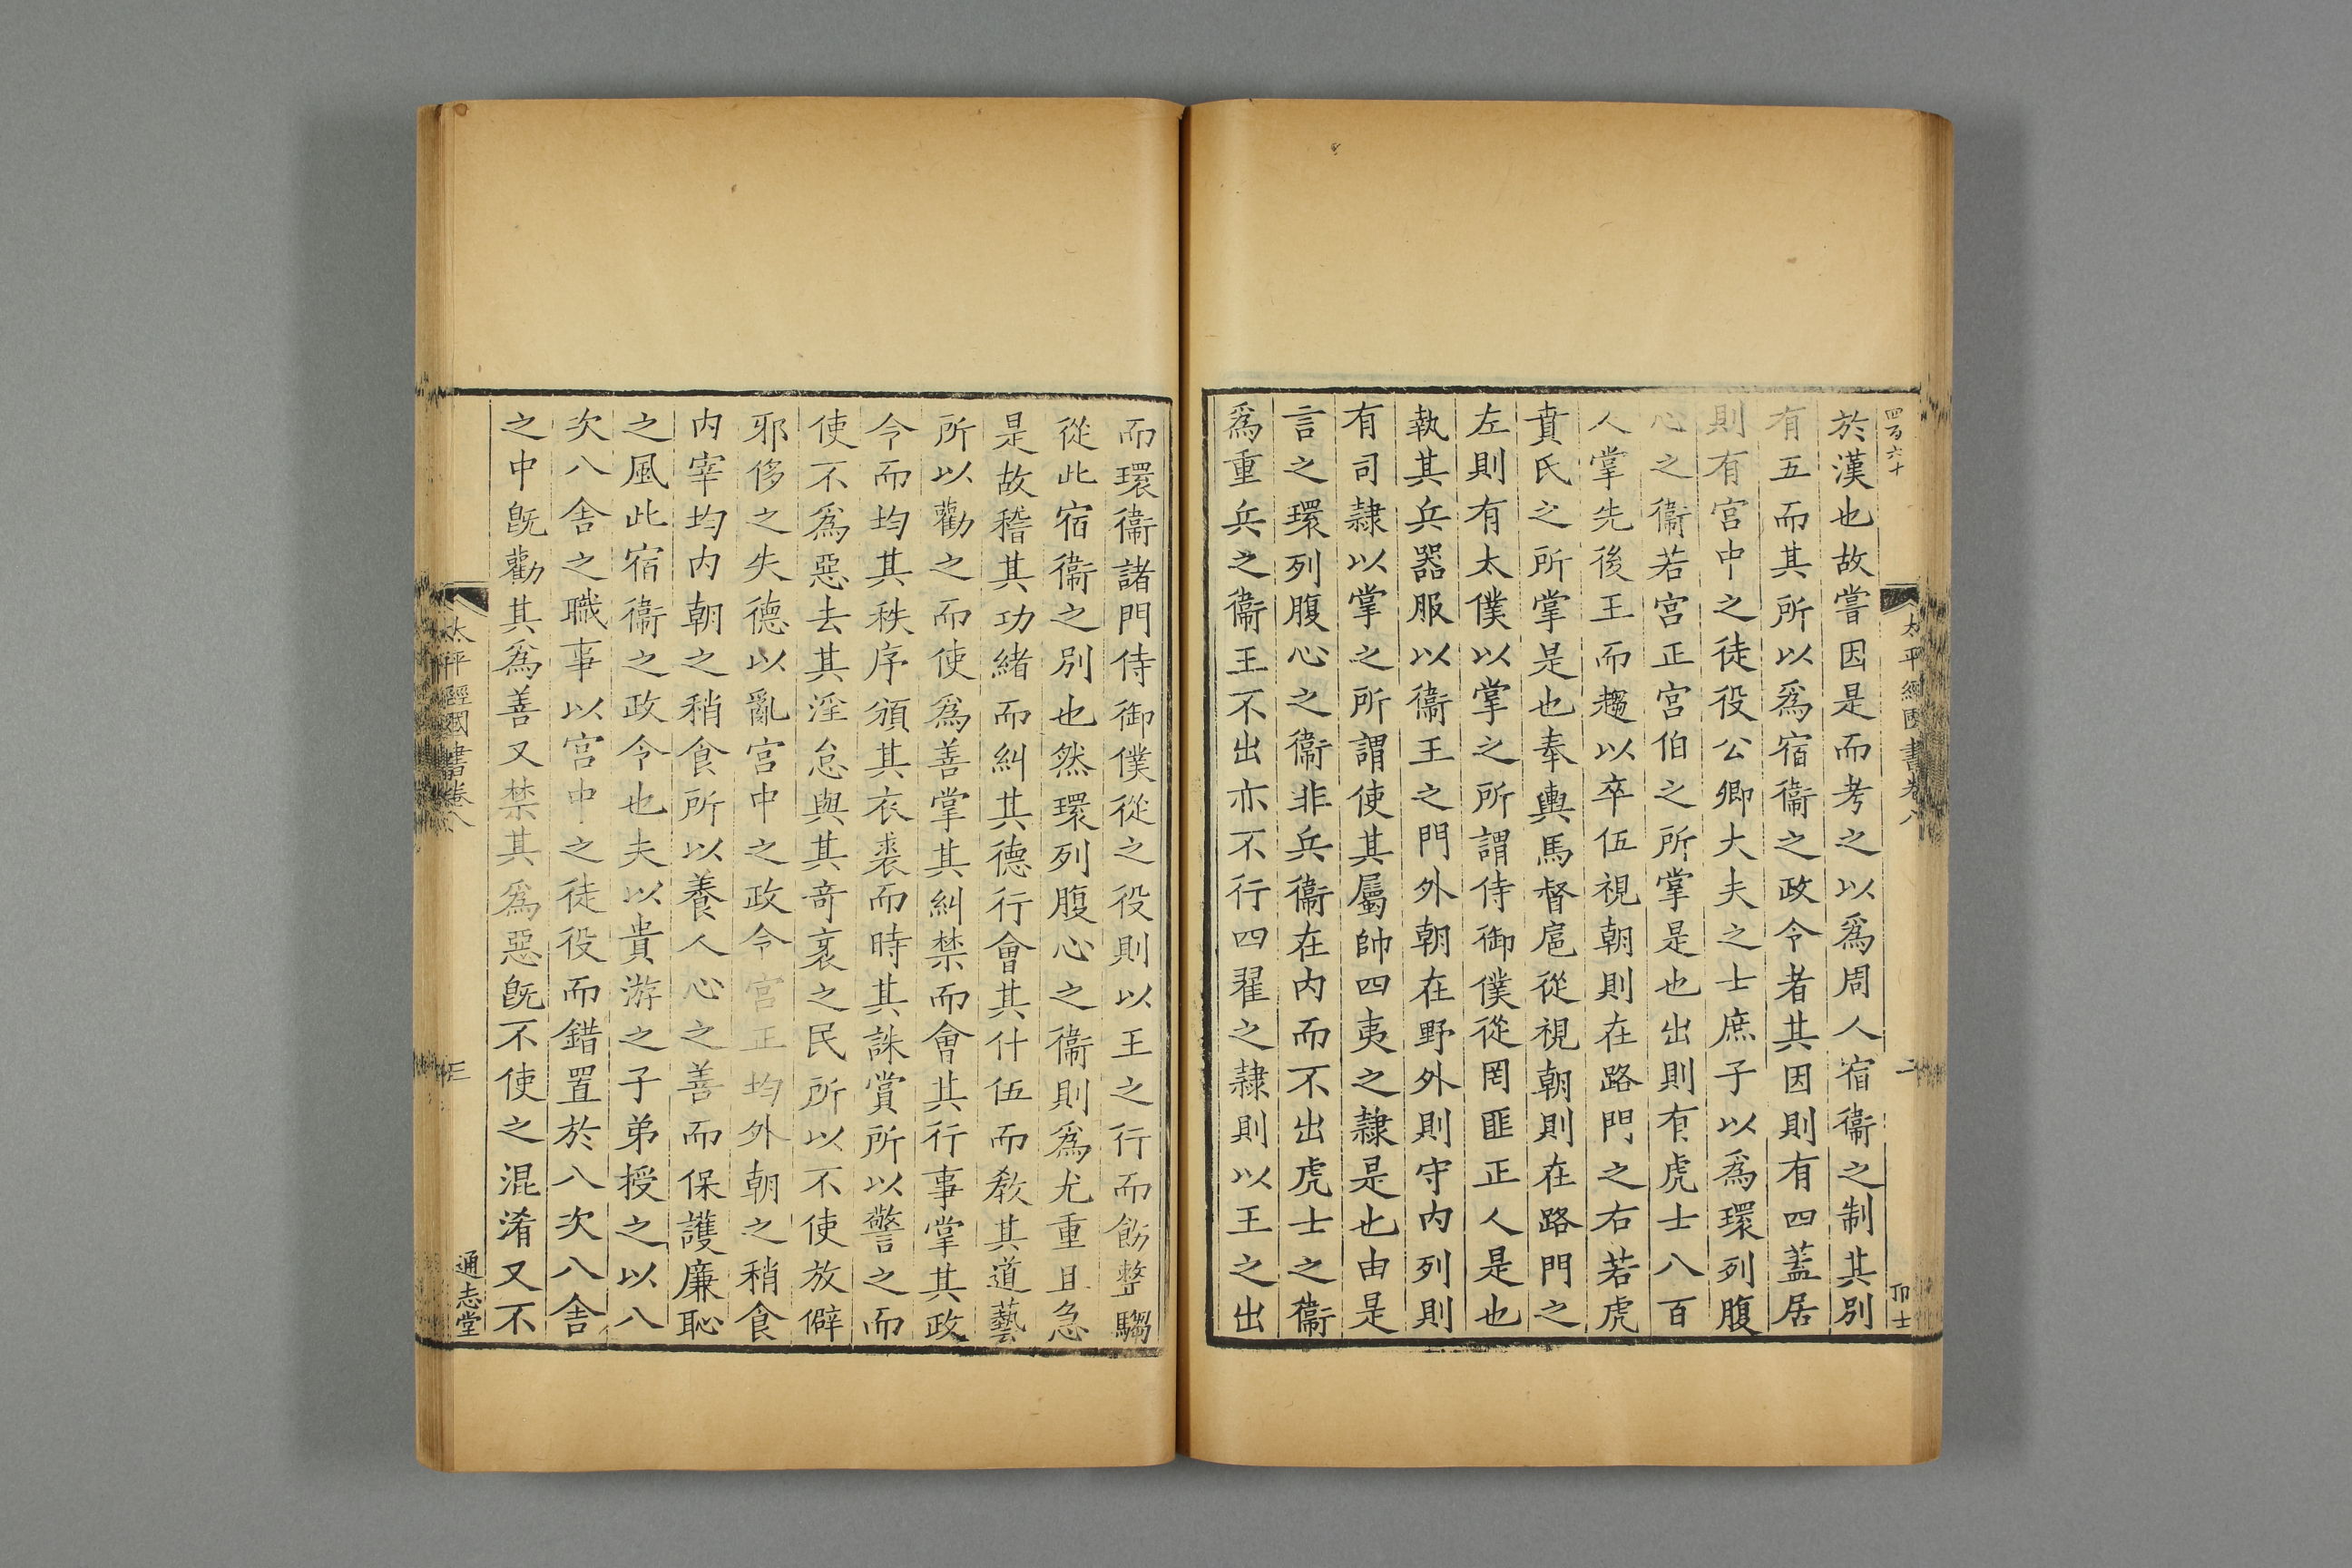 四百六十
太平經國書卷八
二
於漢也故嘗因是而考之以爲周人宿衞之制其別
有五而其所以爲宿衞之政令者其因則有四蓋居
則有宮中之徒役公卿大夫之士庶子以爲環列腹
心之衞若宮正宮伯之所掌是也出則有虎士八百
人掌先後王而趨以卒伍視朝則在路門之右若虎
賁氏之所掌是也奉輿馬督扈從視朝則在路門之
左則有太僕以掌之所謂侍御僕從罔匪正人是也
執其兵器服以衞王之門外朝在野外則守内列則
有司隷以掌之所謂使其屬帥四夷之隷是也由是
言之環列腹心之衞非兵衞在内而不出虎士之衞
爲重兵之衞王不出亦不行四翟之隷則以王之出
而環衞諸門侍御僕從之役則以王之行而飭整騶
從此宿衞之別也然環列腹心之衞則爲尤重且急
是故稽其功緒而糾其德行會其什伍而敎其道藝
所以勸之而使爲善掌其糾禁而會其行事掌其政
令而均其秩序頒其衣裘而時其誅賞所以警之而
使不爲惡去其淫怠與其奇衺之民所以不使放僻
邪侈之失德以亂宮中之政令宮正均外朝之稍食
内宰均内朝之稍食所以養人心之善而保護廉恥
之風此宿衞之政令也夫以貴游之子弟授之以八
次八舍之職事以宮中之徒役而錯置於八次八舍
之中旣勸其爲善又禁其爲惡旣不使之混淆又不
太平經國書卷八
三
通志堂